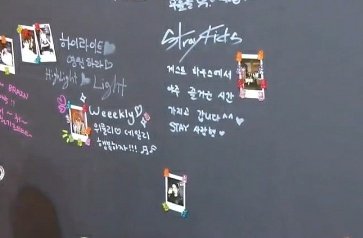 하이라이트♡
영원하라♡
Highlight♡Light
Weeekly♡
위클리♡데일리
행복하자!!!
Stray Kids
게스트 하우스에서
아주 즐거운 시간
가지고 갑니다^^
STAY 사랑해♡